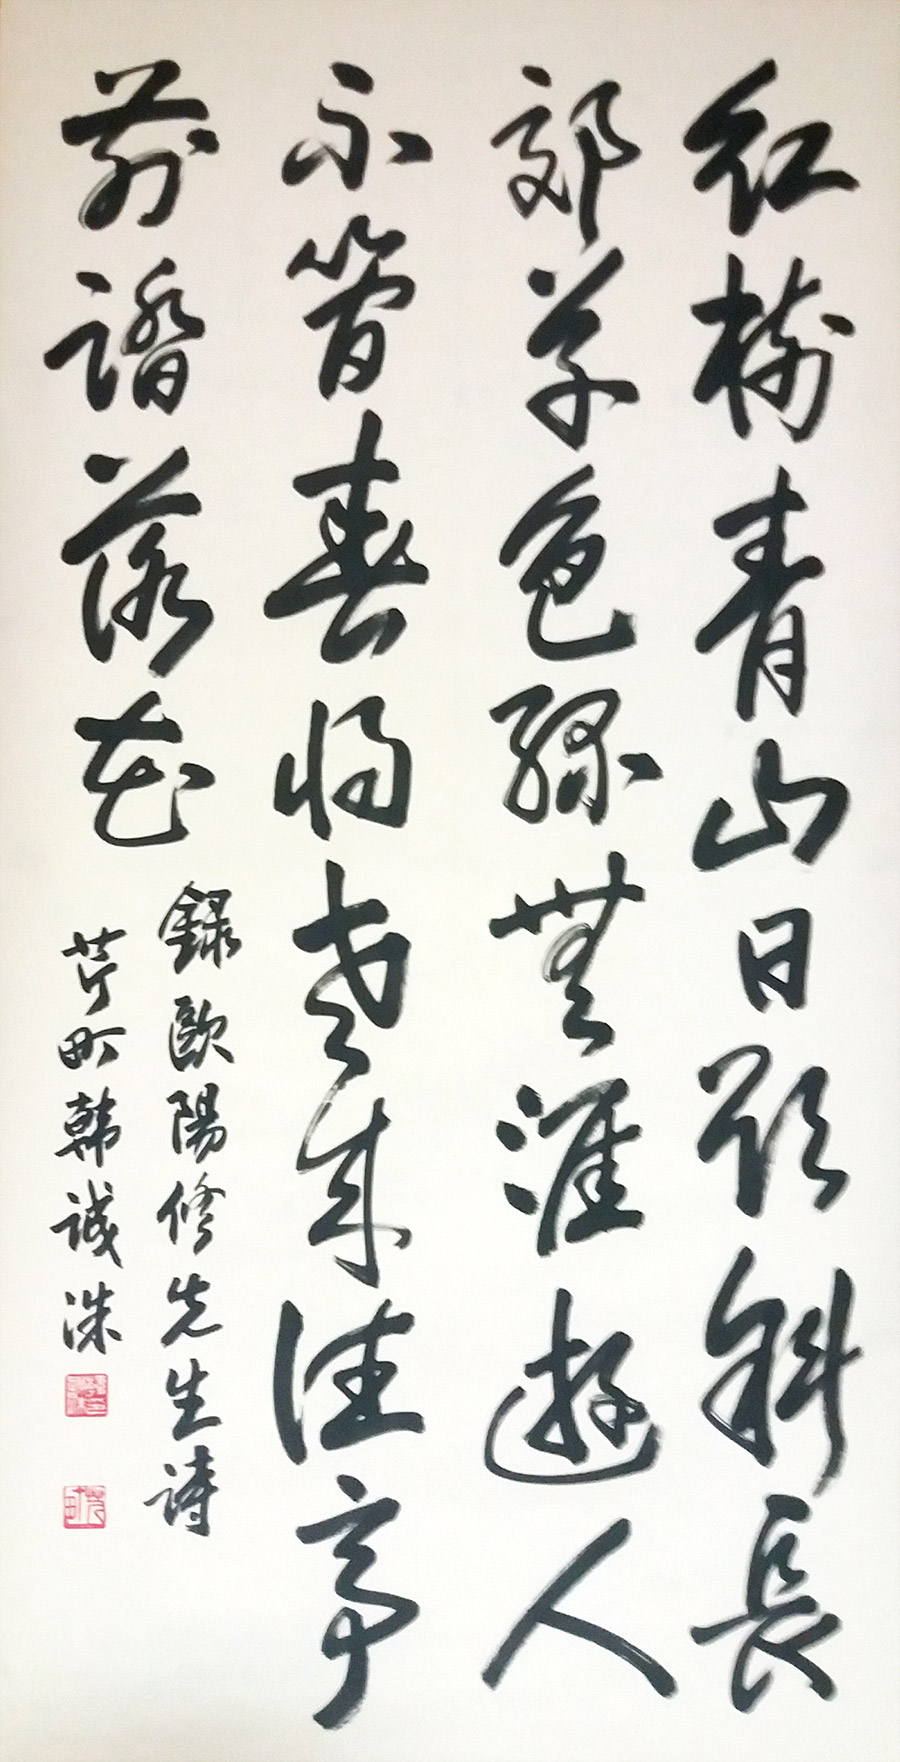 紅樹青山日欲斜長
郊草色綠無涯遊人
不管春將老來往亭
前踏落花
錄歐陽修先生詩
芹町韓誠洙